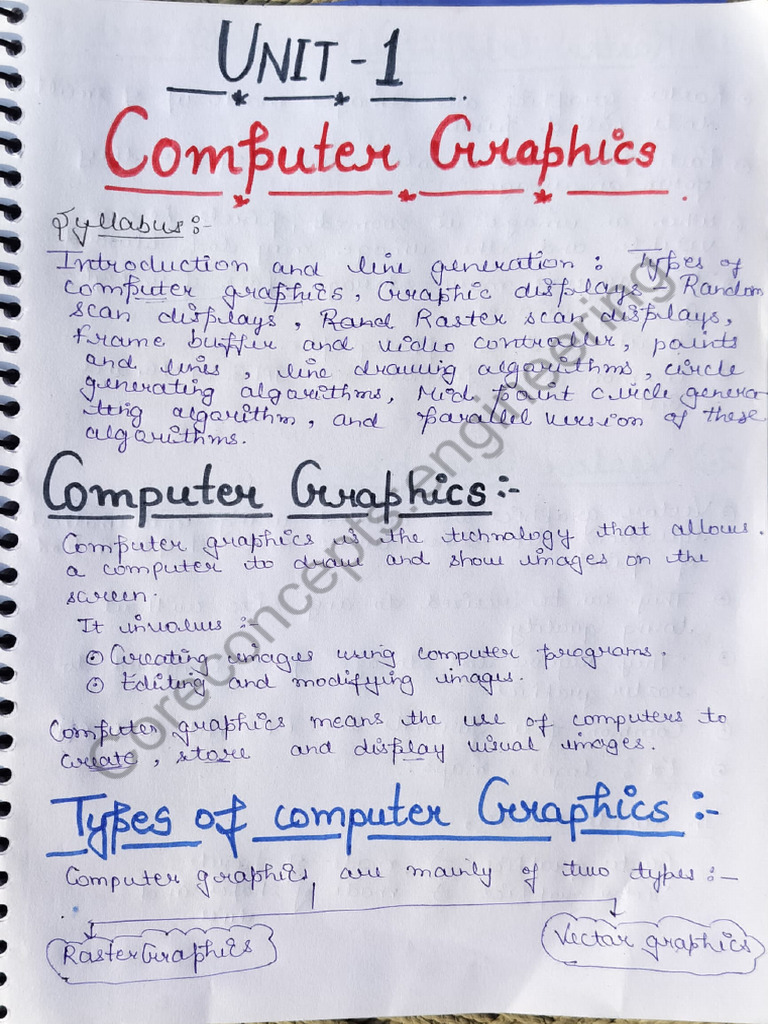 UNIT - 1
Computer Graphics
Syllabus:-
Introduction and line generation : Types of
computer graphics, Graphic displays - Random
scan displays, Rand Raster scan displays,
frame buffer and video controller, points
and lines, line drawing algorithms, circle
generating algorithms, Mid point circle genera-
tting algorithm, and parallel version of these
algorithms.
Computer Graphics:-
Computer graphics is the technology that allows
a computer to draw and show images on the
screen.
It involves :-
Creating images using computer programs.
Editing and modifying images.
Computer graphics means the use of computers to
create, store and display visual images.
Types of computer Graphics :-
Computer graphics are mainly of two types :-
Raster Graphics
Vector graphics
Coreconcepts.engineering